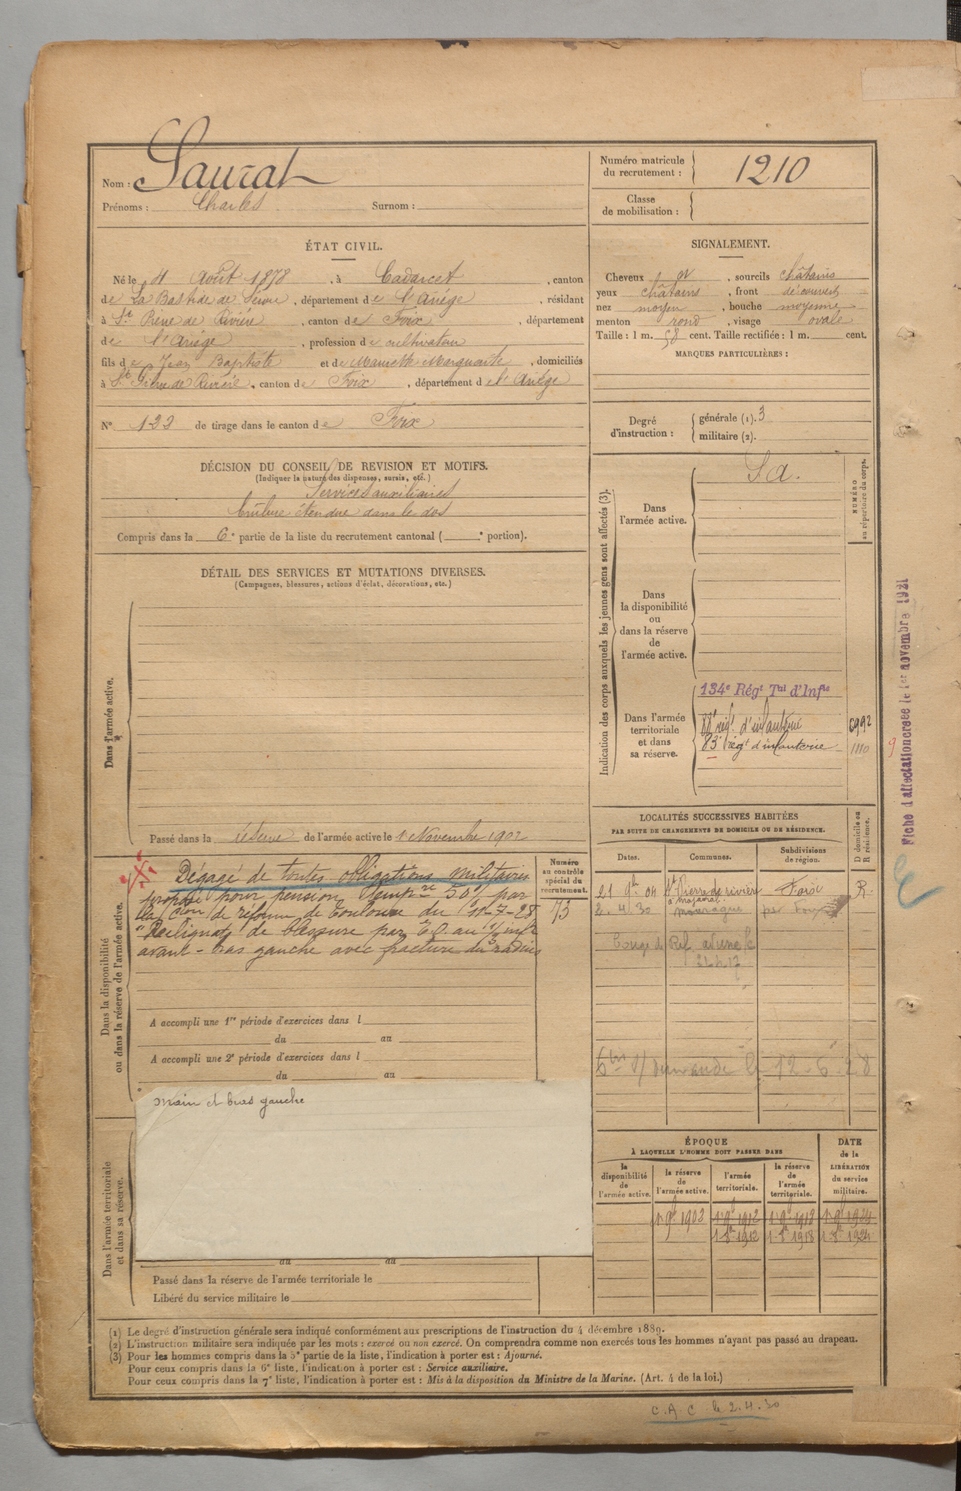 Nom : Saurat
Prénoms : Charles Surnom :
Numéro matricule du recrutement : 1210
Classe de mobilisation :
ÉTAT CIVIL.
Né le 4 Août 1878, à Cadarcet, canton
de La Bastide de Serou, département de l'Ariège, résidant
à St Pierre de Rivière, canton de Foix, département
de l'Ariège, profession de cultivateur
fils de Jean Baptiste et de Marguerite, domiciliés
à St Pierre de Rivière, canton de Foix, département d e l'Ariège
N° 133 de tirage dans le canton de Foix
SIGNALEMENT.
Cheveux, sourcils châtains
yeux châtains, front découvert
nez moyen, bouche moyenne
menton rond, visage ovale
Taille : 1 m. 58 cent. Taille rectifiée : 1 m. cent.
MARQUES PARTICULIÈRES :
Degré d'instruction : générale (1). 3
militaire (2).
DÉCISION DU CONSEIL DE REVISION ET MOTIFS.
(Indiquer la nature des dispenses, sursis, etc.)
Services auxiliaires
brûlure étendue dans le dos
Compris dans la 6e partie de la liste du recrutement cantonal ( e portion).
DÉTAIL DES SERVICES ET MUTATIONS DIVERSES.
(Campagnes, blessures, actions d'éclat, décorations, etc.)
Dans l'armée active.
Passé dans la réserve de l'armée active le 1 Novembre 1902
Indication des corps auxquels les jeunes gens sont affectés (3).
NUMÉRO au répertoire du corps.
Dans l'armée active. S A.
Dans la disponibilité ou dans la réserve de l'armée active.
Dans l'armée territoriale et dans sa réserve.
134e Régt Tal d'Infie
88e régt d'infanterie 6992
83e régt d'infanterie 1110
Fiche d'affectation créée le 1er novembre 1921
Dans la disponibilité ou dans la réserve de l'armée active.
Dégagé de toutes obligations militaires
proposé pour pension Tempre 50% par
la Cion de réforme de Toulouse du 11-7-28
"Reliquat" de blessure par E.O au 1/3 infr
avant-bras gauche avec fracture du radius
Numéro au contrôle spécial du recrutement.
73
A accompli une 1re période d'exercices dans l
du au
A accompli une 2e période d'exercices dans l
du au
main et bras gauche
LOCALITÉS SUCCESSIVES HABITÉES
PAR SUITE DE CHANGEMENTS DE DOMICILE OU DE RÉSIDENCE.
D domicile ou R résidence.
Dates. Communes. Subdivisions de région.
21 9bre 04 St Pierre de rivière Foix R.
2.4.30
12-6-28
Dans l'armée territoriale et dans sa réserve.
du au
Passé dans la réserve de l'armée territoriale le
Libéré du service militaire le
ÉPOQUE
À LAQUELLE L'HOMME DOIT PASSER DANS
DATE de la LIBÉRATION du service militaire.
la disponibilité de l'armée active.
la réserve de l'armée active.
l'armée territoriale.
la réserve de l'armée territoriale.
1 9bre 1903 1 9bre 1912 1 9bre 1918 1 9bre 1924
1912 1918 1924
(1) Le degré d'instruction générale sera indiqué conformément aux prescriptions de l'instruction du 4 décembre 1889.
(2) L'instruction militaire sera indiquée par les mots : exercé ou non exercé. On comprendra comme non exercés tous les hommes n'ayant pas passé au drapeau.
(3) Pour les hommes compris dans la 5e partie de la liste, l'indication à porter est : Ajourné.
Pour ceux compris dans la 6e liste, l'indication à porter est : Service auxiliaire.
Pour ceux compris dans la 7e liste, l'indication à porter est : Mis à la disposition du Ministre de la Marine. (Art. 4 de la loi.)
C.A.C le 2.4.30